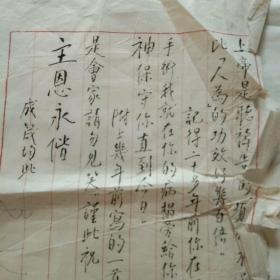 上帝是聽禱告的
比「人為的功效好幾百倍。
記得二十多年前你在
手術我就在你的病榻旁給你
神保守你直到今日。
附上幾年前寫的一首
是會家請勿見笑，謹此祝
主恩永偕